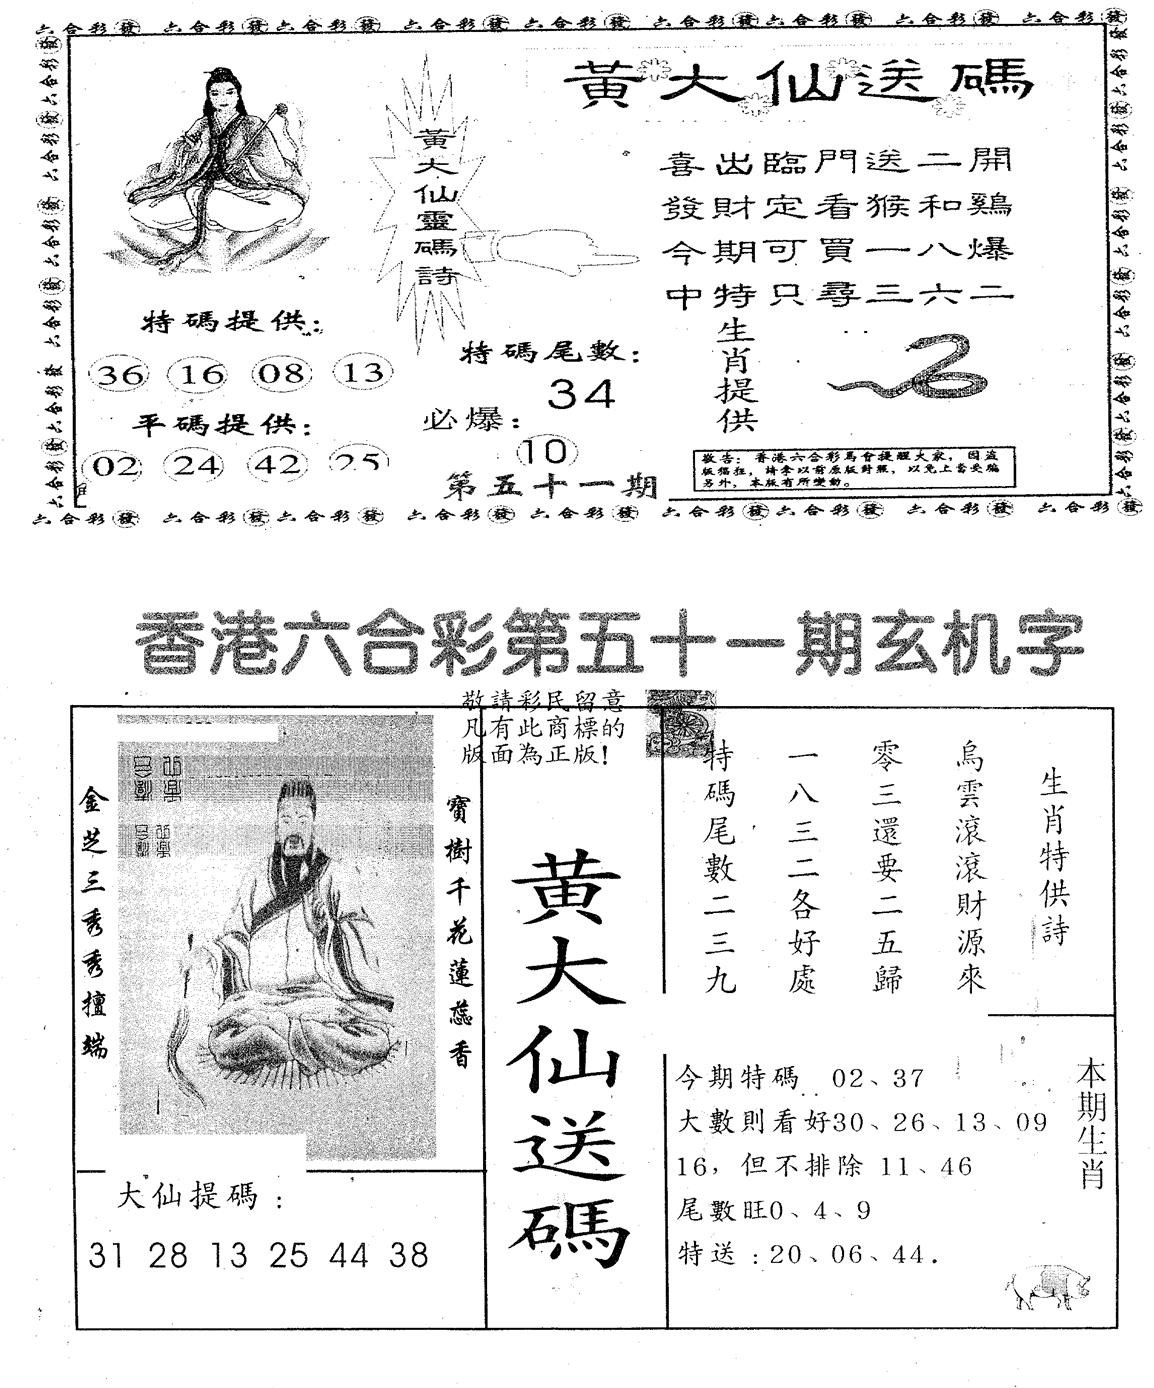 六合彩發 六合彩發 六合彩發 六合彩發 六合彩發 六合彩發 六合彩發 六合彩發 六合彩發
黃大仙送碼
黃大仙靈碼詩
喜出臨門送二開
發財定看猴和鷄
今期可買一八爆
中特只尋三六二
特碼提供:
36 16 08 13
平碼提供:
02 24 42 25
特碼尾數:
34
必爆:
10
第五十一期
生肖提供
敬告:香港六合彩馬會提醒大家,因盜
版猖狂,請拿以前原版對照,以免上當受騙
另外,本版有所變動。
六合彩發 六合彩發 六合彩發 六合彩發 六合彩發 六合彩發 六合彩發 六合彩發 六合彩發
香港六合彩第五十一期玄机字
敬請彩民留意
凡有此商標的
版面為正版!
金芝三秀秀擅端
寶樹千花蓮蕊香
大仙提碼:
31 28 13 25 44 38
黃大仙送碼
生肖特供詩
烏雲滾滾財源來
零三還要二五歸
一八三二各好處
特碼尾數二三九
本期生肖
今期特碼 02、37
大數則看好30、26、13、09
16，但不排除 11、46
尾數旺0、4、9
特送:20、06、44.